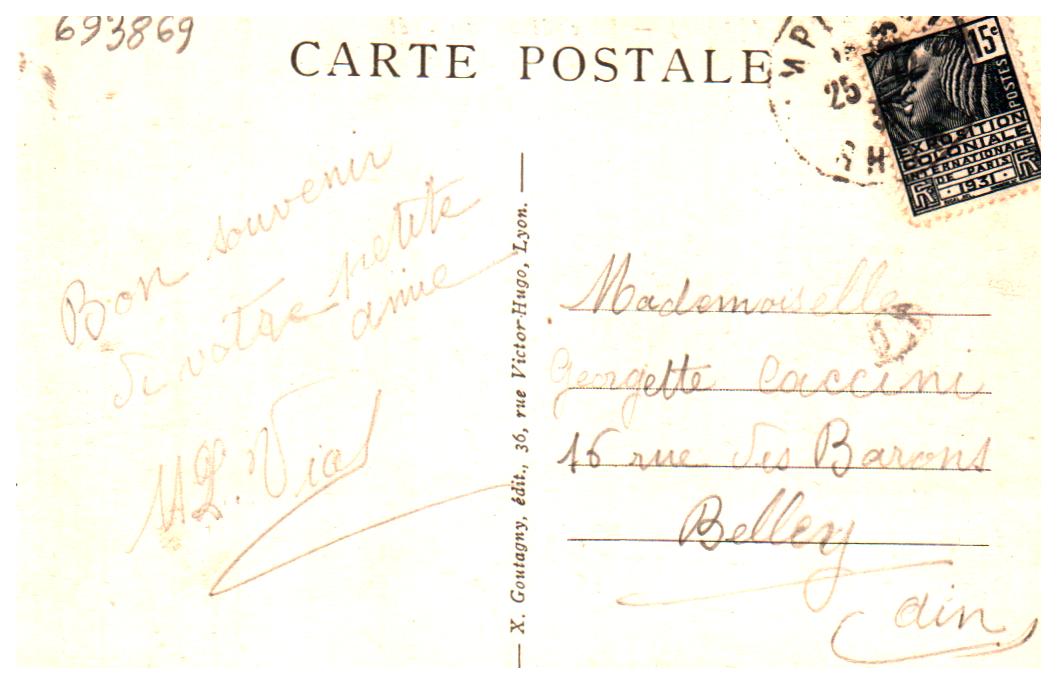 693869
CARTE POSTALE
25
15c
POSTES
EXPOSITION
COLONIALE
INTERNATIONALE
DE PARIS
1931
RF RF
Bon souvenir
de votre petite
amie
ML. Vial
X. Goutagny, édit., 36, rue Victor-Hugo, Lyon.
Mademoiselle
Georgette Caccini
16 rue des Barons
Belley
Ain